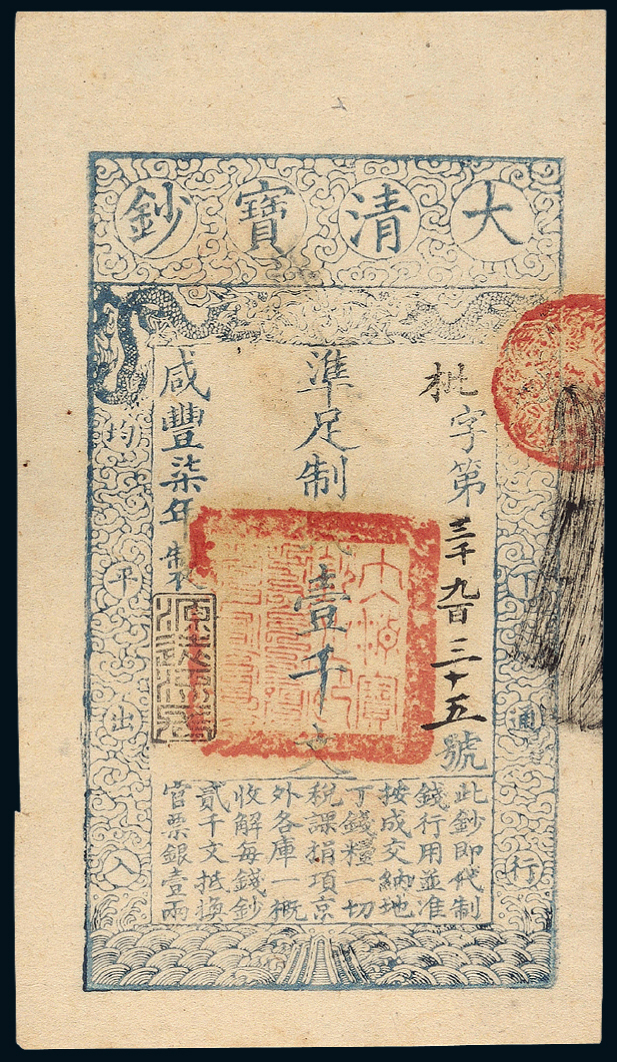 大清寶鈔
下通行
字第三千九百三十五號
準足制錢壹千文
咸豐柒年製
均平出入
此鈔即代制
錢行用並准
按成交納地
丁錢糧一切
稅課捐項京
外各庫一概
收解每錢鈔
貳千文抵換
官票銀壹兩